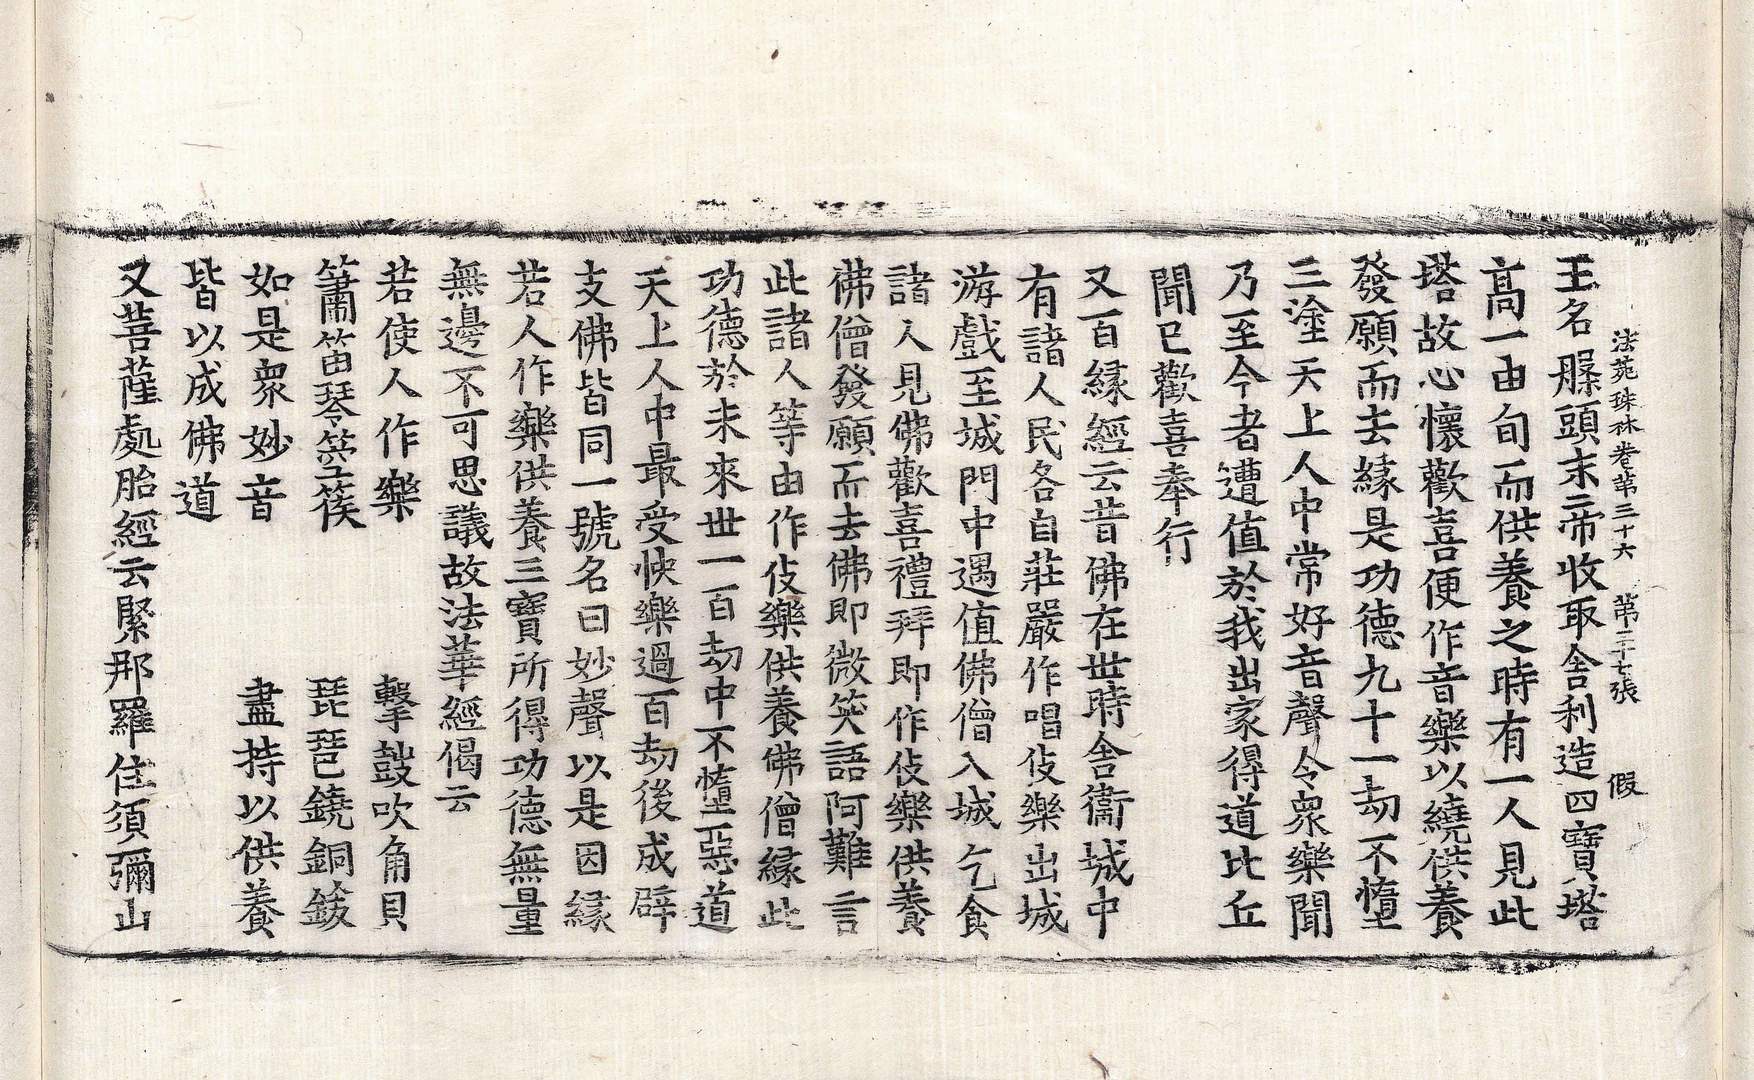 法苑珠林卷第三十六　第二十七張　假
王名槃頭末帝收取舍利造四寶塔
高一由旬而供養之時有一人見此
塔故心懷歡喜便作音樂以繞供養
發願而去緣是功德九十一劫不墮
三塗天上人中常好音聲令衆樂聞
乃至今者遭值於我出家得道比丘
聞已歡喜奉行
又百緣經云昔佛在世時舍衞城中
有諸人民各自莊嚴作唱伎樂出城
游戲至城門中遇值佛僧入城乞食
諸人見佛歡喜禮拜即作伎樂供養
佛僧發願而去佛即微笑語阿難言
此諸人等由作伎樂供養佛僧緣此
功德於未來世一百劫中不墮惡道
天上人中最受快樂過百劫後成辟
支佛皆同一號名曰妙聲以是因緣
若人作樂供養三寶所得功德無量
無邊不可思議故法華經偈云
若使人作樂　擊鼓吹角貝
簫笛琴箜篌　琵琶鐃銅鈸
如是衆妙音　盡持以供養
皆以成佛道
又菩薩處胎經云緊那羅住須彌山